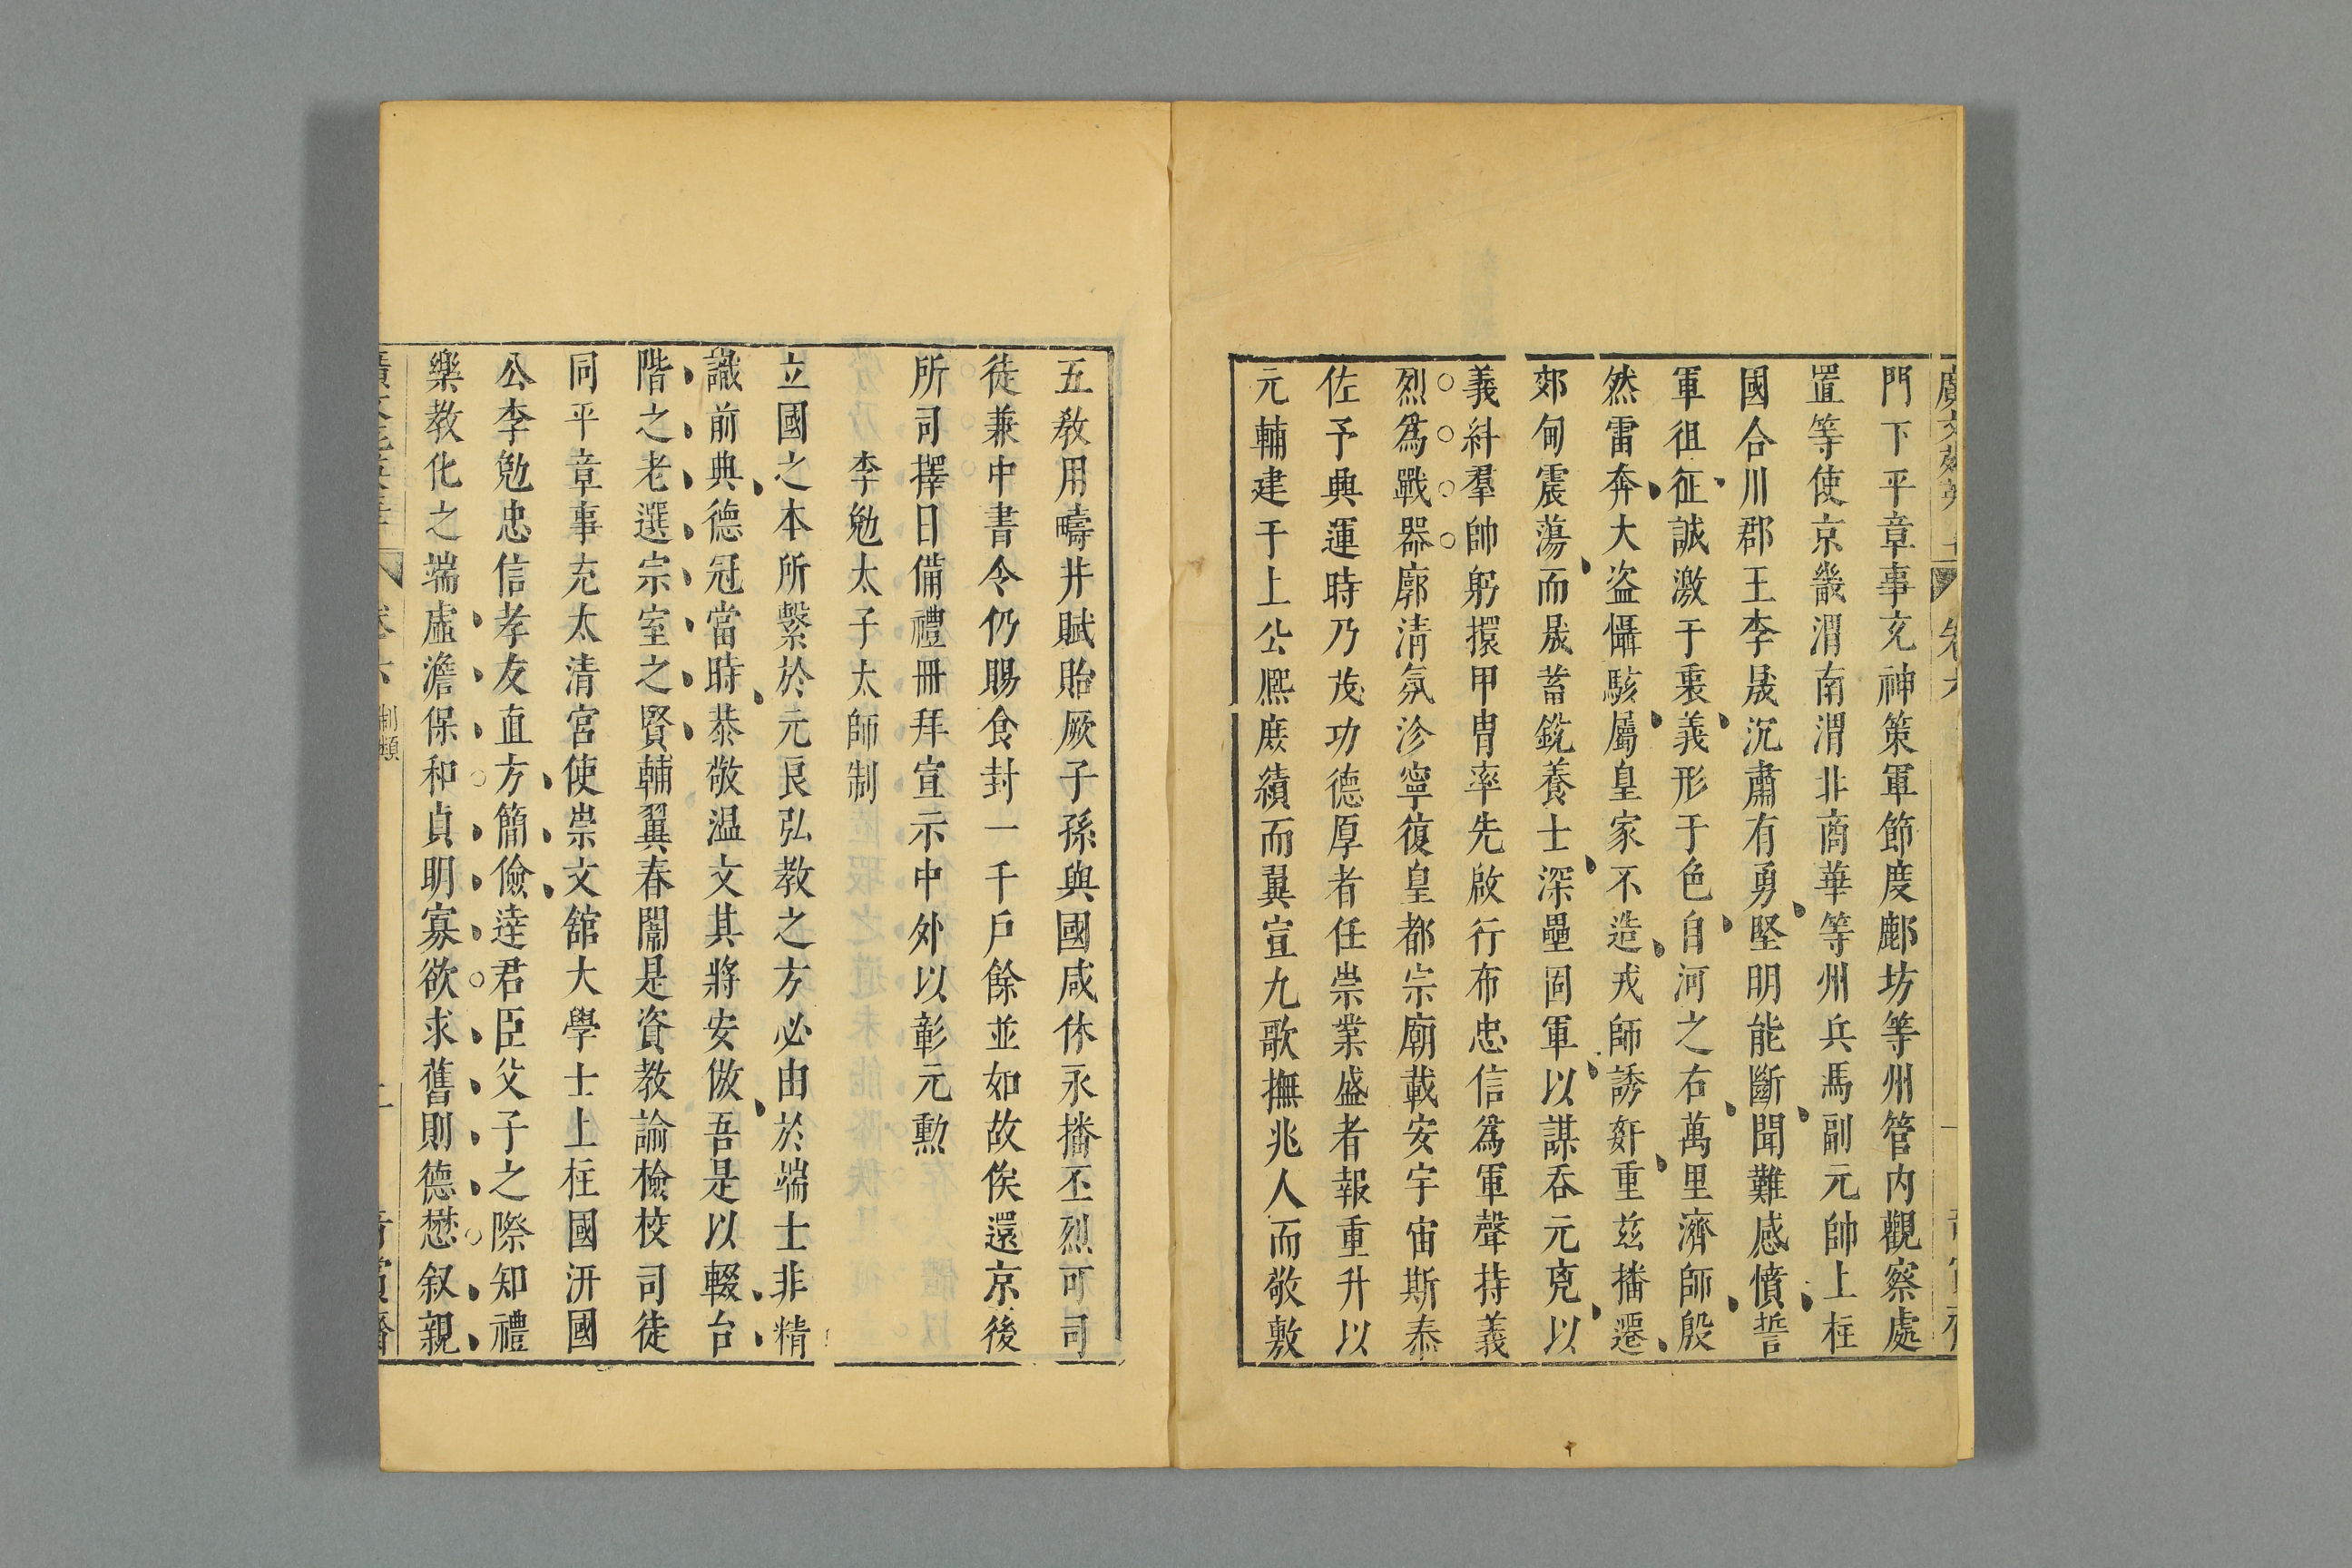 門下平章事充神策軍節度鄜坊等州管内觀察處
置等使京畿渭南渭非商華等州兵馬副元帥上柱
國合川郡王李晟沉肅有勇堅明能斷聞難感憤誓
軍徂征誠激于衷義形于色自河之右萬里濟師殷
然雷奔大盗懾駭屬皇家不造戎師誘姧重兹播遷
郊甸震蕩而晟蓄銳養士深壘固軍以謀吞元兇以
義紏羣帥躬擐甲冑率先啟行布忠信爲軍聲持義
烈爲戰器廓清氛沴寧復皇都宗廟載安宇宙斯泰
佐予興運時乃茂功德厚者任崇業盛者報重升以
元輔建于上公熈庶績而翼宣九歌撫兆人而敬敷
五教用疇井賦貽厥子孫與國咸休永播丕烈可司
徒兼中書令仍賜食封一千戶餘並如故俟還京後
所司擇日備禮冊拜宣示中外以彰元勲
李勉太子太師制
立國之本所繫於元良弘教之方必由於端士非精
識前典德冠當時恭敬温文其將安倣吾是以輟台
階之老選宗室之賢輔翼春闈是資教諭檢校司徒
同平章事充太清宮使崇文舘大學士上柱國汧國
公李勉忠信孝友直方簡儉逹君臣父子之際知禮
樂教化之端虛澹保和貞明寡欲求舊則德懋叙親
制類